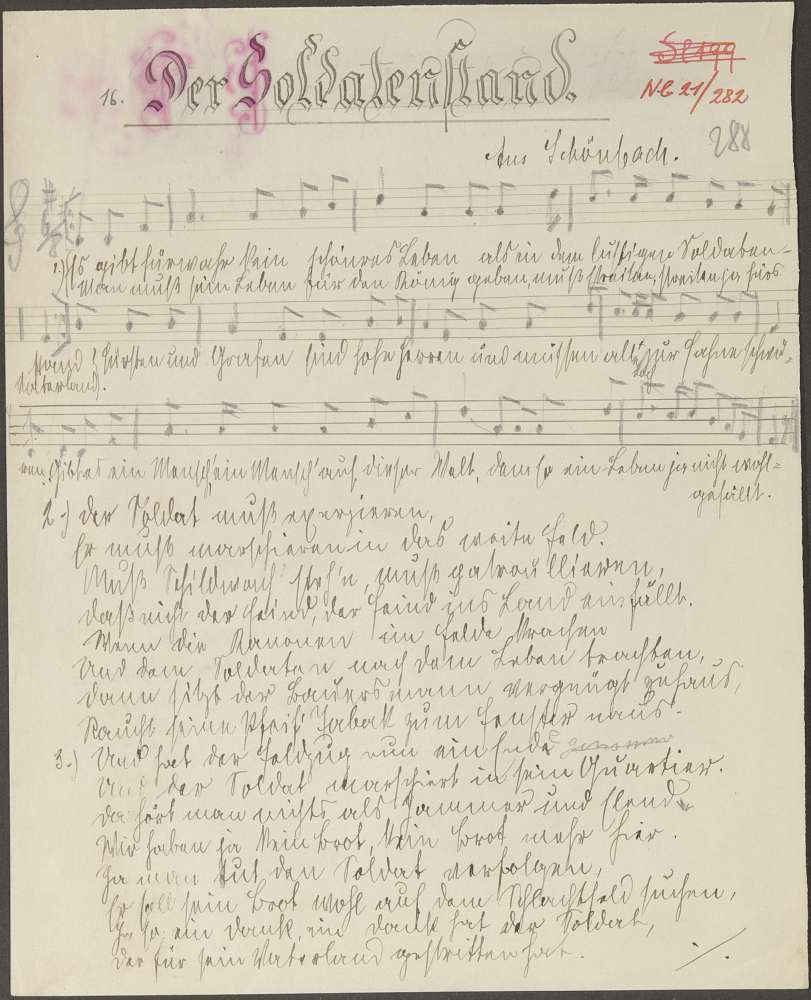 16. Der Soldatenstand.
NL 21/282
288
Aus Schönbach.
1.) Es gibt fürwahr kein schönres Leben als in dem lustigen Soldaten-
Man muß sein Leben für den König geben, muß streiten, streiten ja fürs
stand! Fürsten und Grafen sind hohe Herren und müssen all' zur Fahne schwö-
Vaterland.
ren. Gibt es ein Mensch, ein Mensch auf dieser Welt, dem so ein Leben ja nicht wohl-
gefällt.
2.) Der Soldat muß exerzieren,
Er muß marschieren in das weite Feld.
Muß Schildwach' steh'n, muß patroullieren,
daß nicht der Feind, der Feind ins Land einfällt.
Wenn die Kanonen im Felde krachen
Und dem Soldaten nach dem Leben trachten,
dann sitzt der Bauersmann vergnügt zuhaus,
Raucht seine Pfeif' Tabak zum Fenster naus.
3.) Und hat der Feldzug nun ein Ende
Und der Soldat marschiert in sein Quartier.
da hört man nichts als Jammer und Elend
Wir haben ja kein Brot, kein Brot mehr hier.
Ja man tut den Soldat verfolgen,
Er soll sein Brot wohl auf dem Schlachtfeld suchen,
Ja so ein Dank, ein Dank hat der Soldat,
der für sein Vaterland gestritten hat.